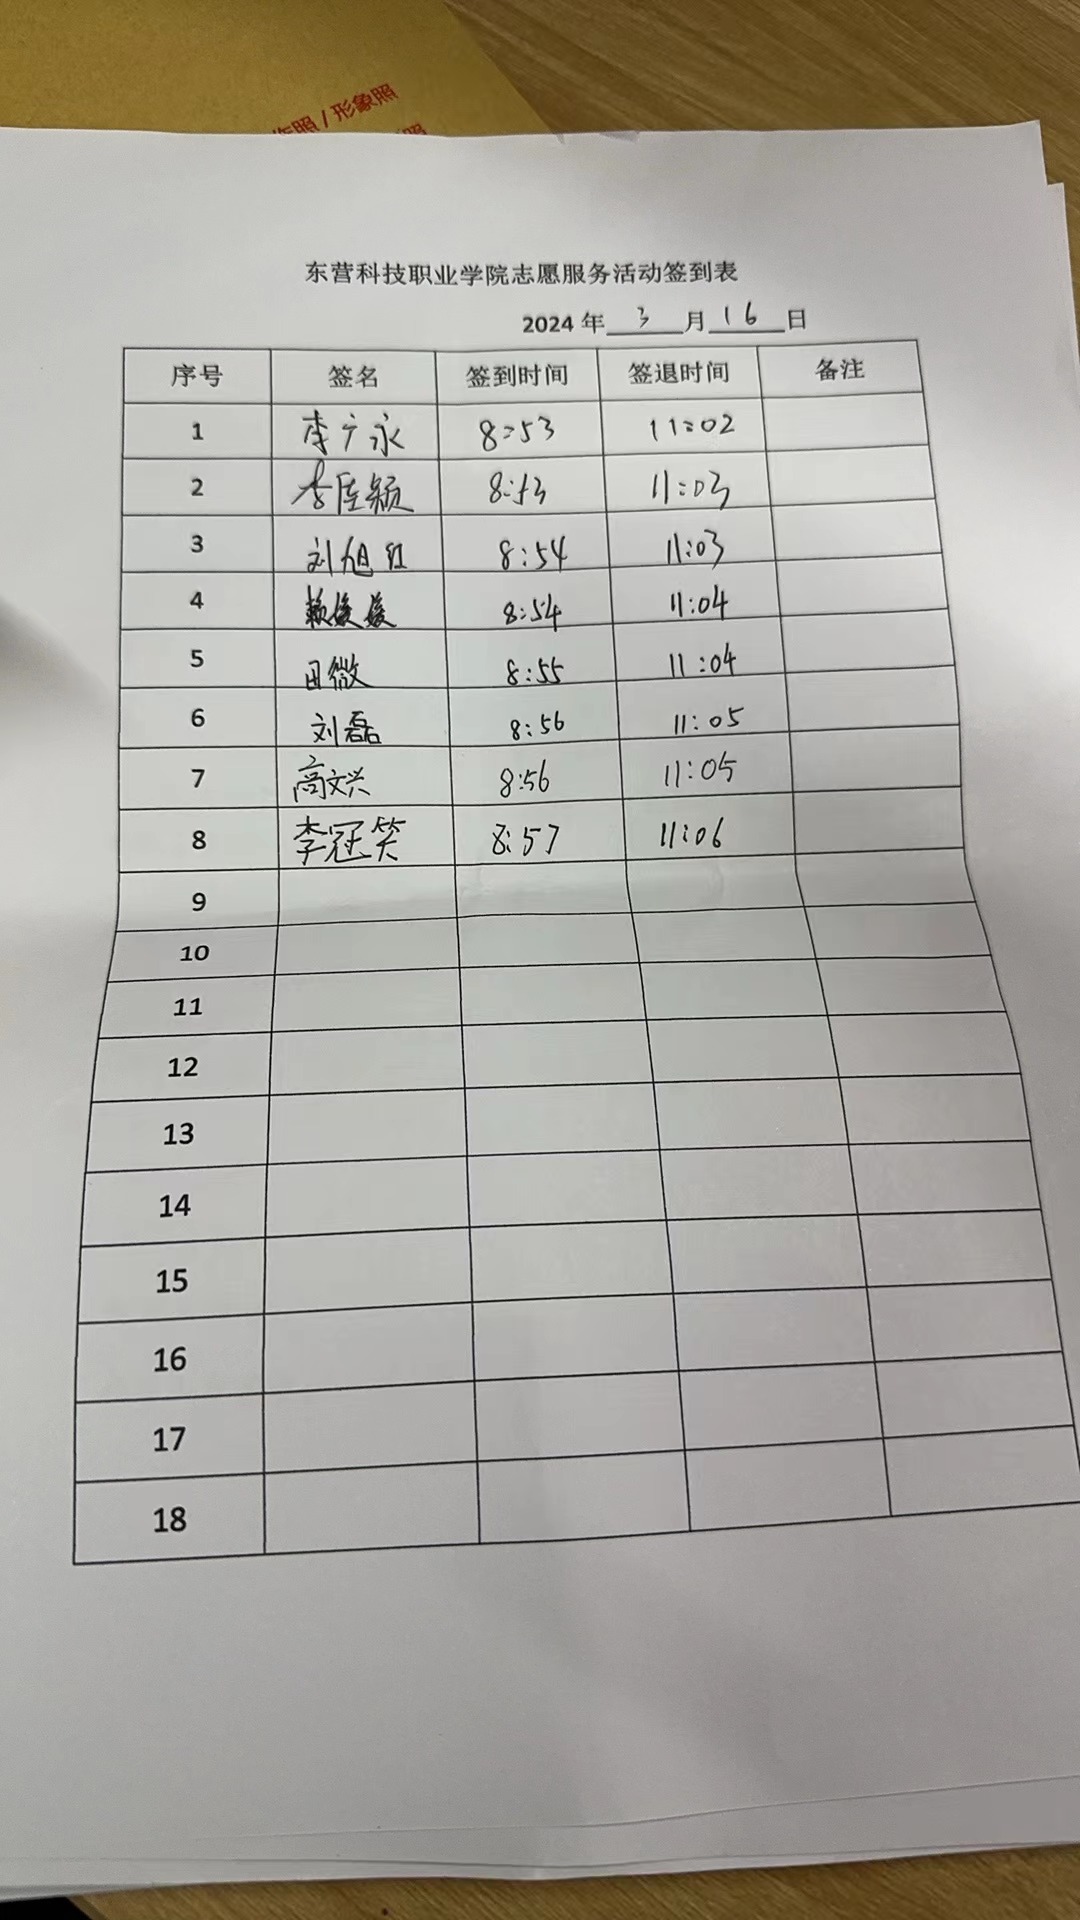 作照 / 形象照
照
东营科技职业学院志愿服务活动签到表
2024 年 3 月 16 日
序号 签名 签到时间 签退时间 备注
1 李广永 8:53 11:02
2 李佳颖 8:53 11:03
3 刘旭红 8:54 11:03
4 赖媛媛 8:54 11:04
5 田微 8:55 11:04
6 刘磊 8:56 11:05
7 高文兴 8:56 11:05
8 李冠笑 8:57 11:06
9
10
11
12
13
14
15
16
17
18